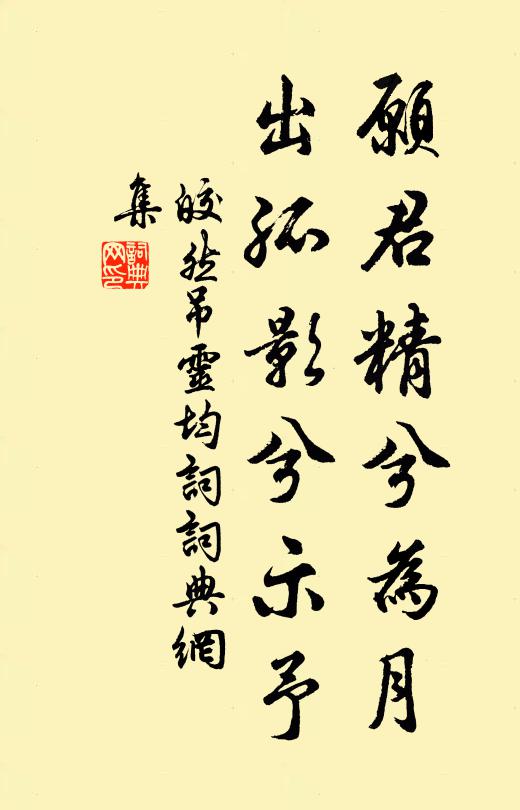 願君精兮為月
出孤影兮示予
皎然吊靈均詞詞典網
集
詞典網印